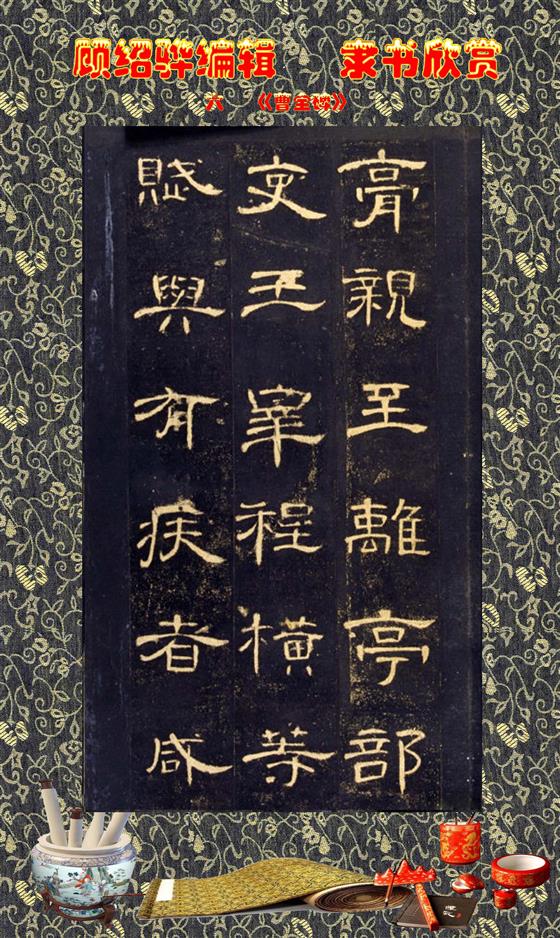 顾绍骅编辑 隶书欣赏
六 《曹全碑》
膏親至離亭部
吏王皋程橫等
賦與有疾者咸